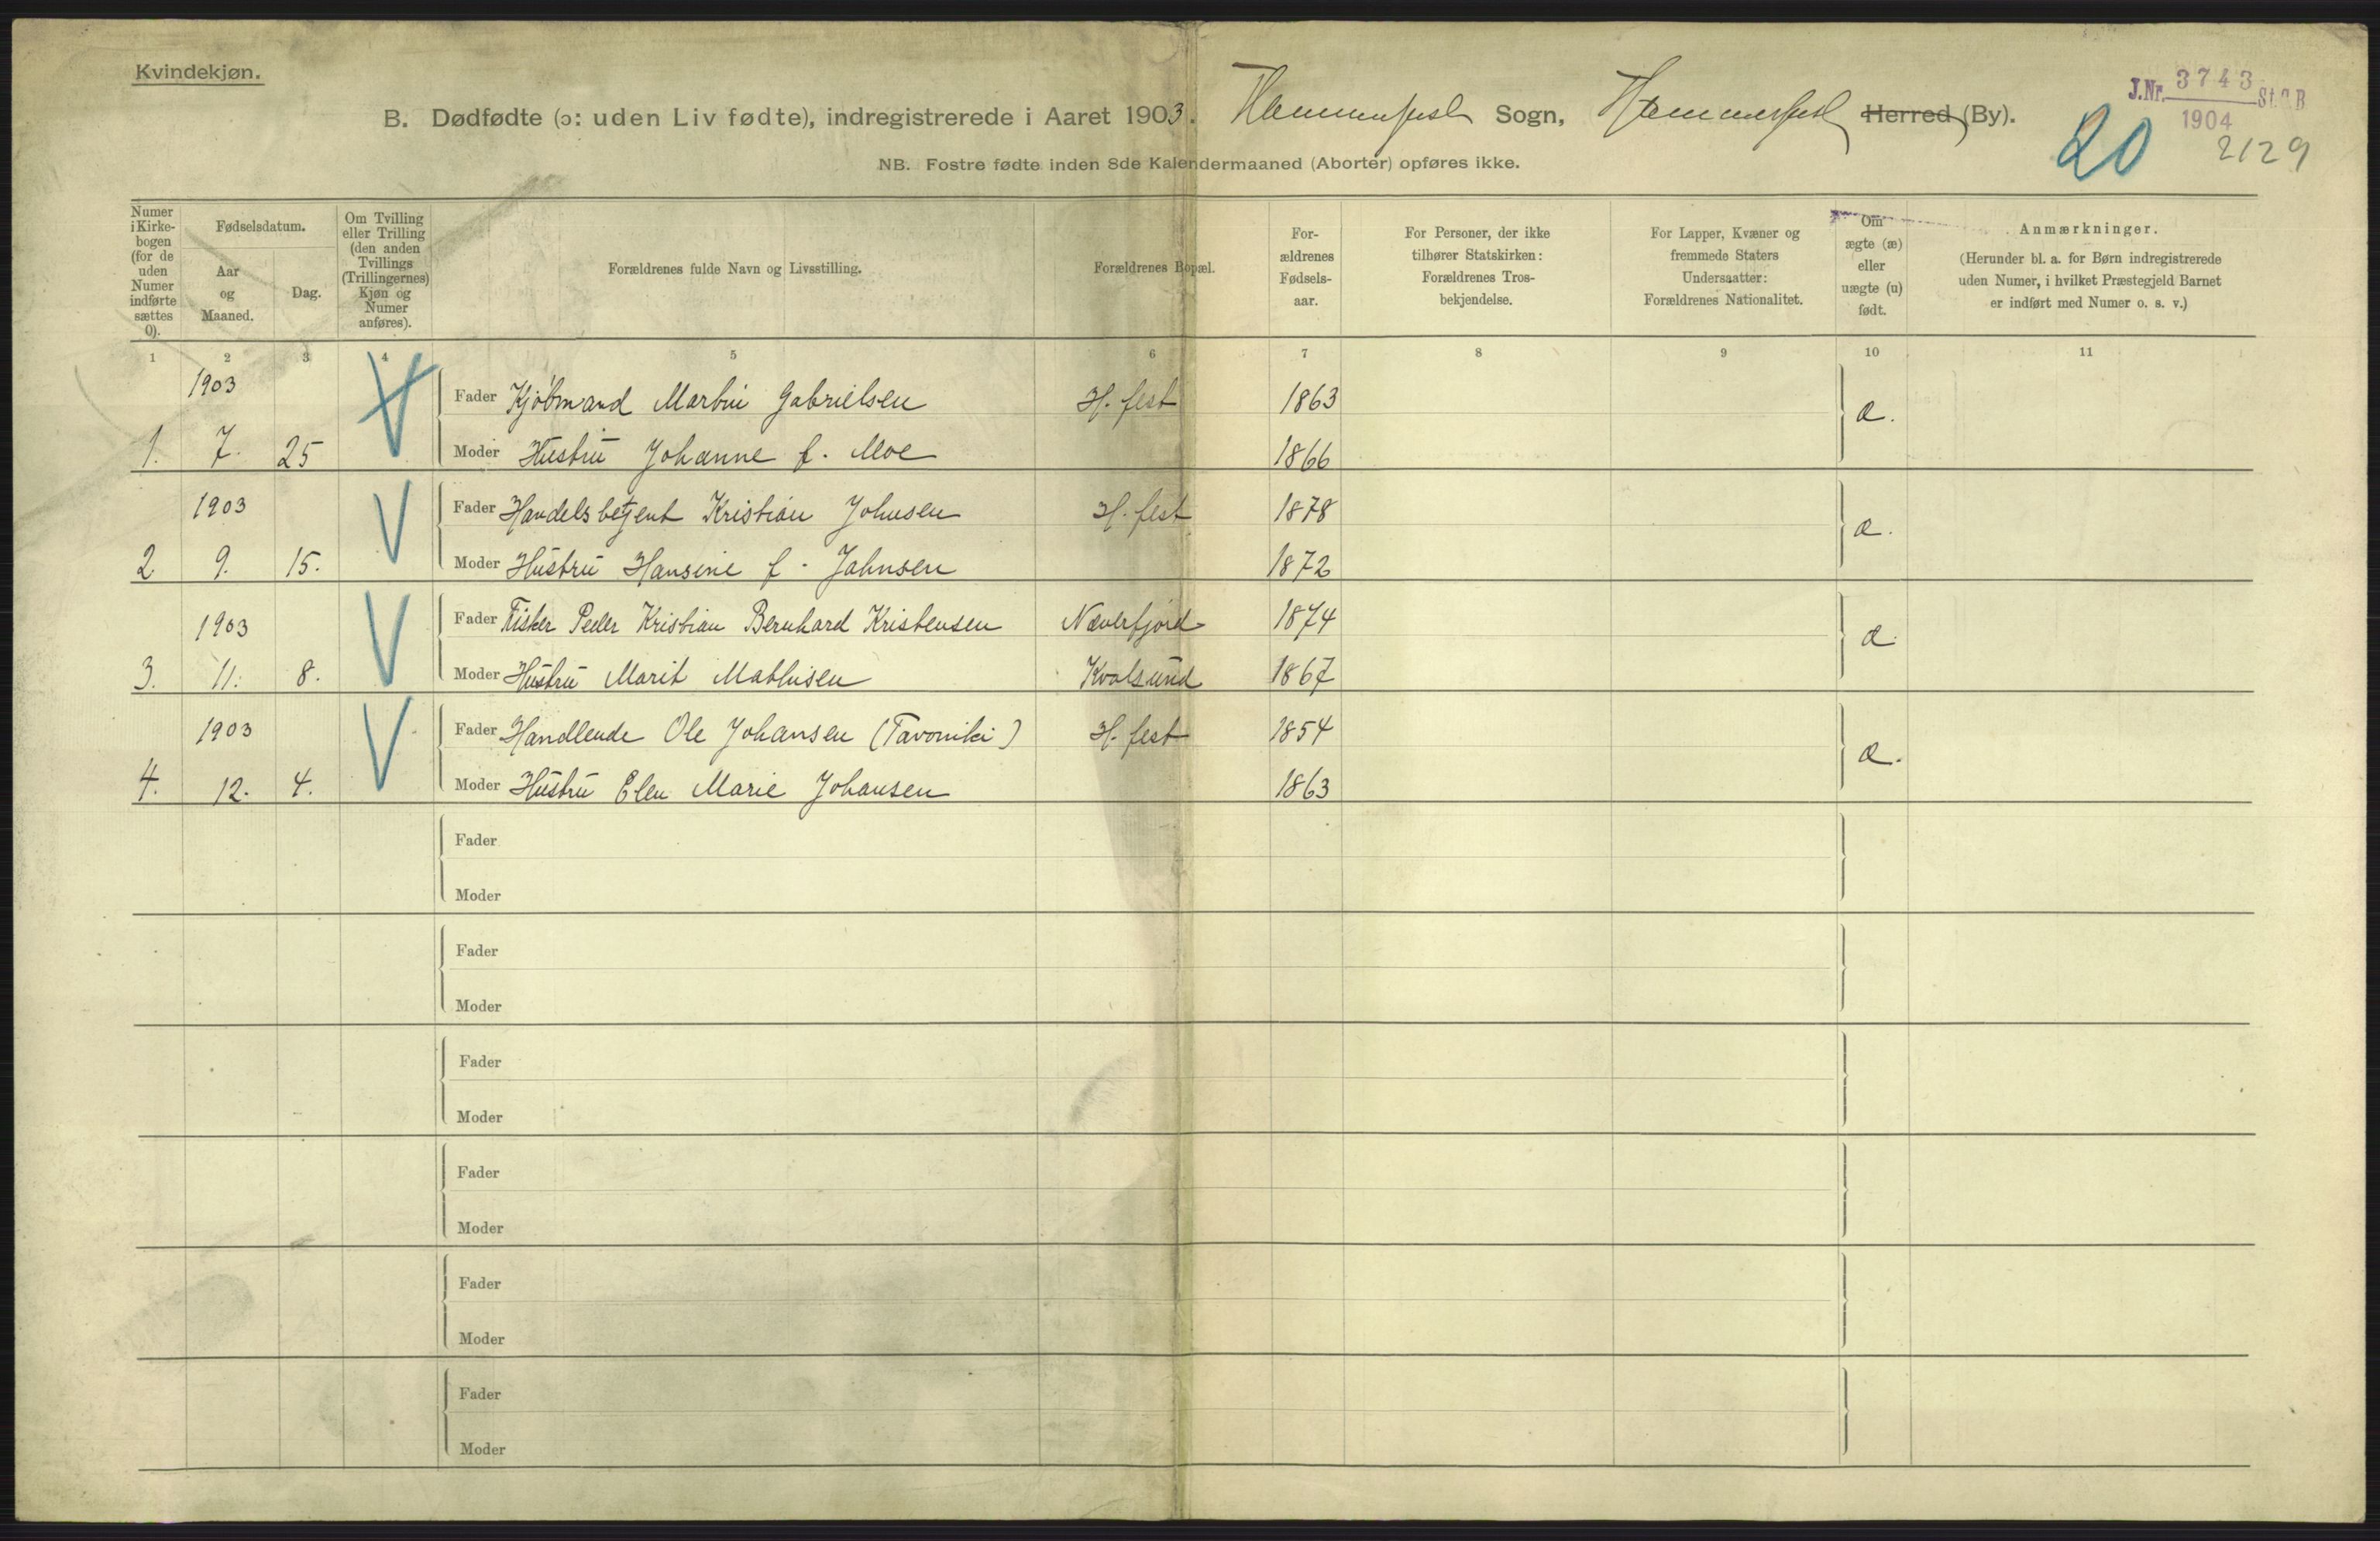 Kvindekjøn.
B. Dødfødte (ɔ: uden Liv fødte), indregistrerede i Aaret 1903. Hammerfest Sogn, Hammerfest Herred (By).
J.Nr. 3743 St.C.B
1904
20
2129
NB. Fostre fødte inden 8de Kalendermaaned (Aborter) opføres ikke.
Numer i Kirke-bogen (for de uden Numer indførte sættes 0).
Fødselsdatum.
Aar og Maaned.
Dag.
Om Tvilling eller Trilling (den anden Tvillings (Trillingernes) Kjøn og Numer anføres).
Forældrenes fulde Navn og Livsstilling.
Forældrenes Bopæl.
For-ældrenes Fødsels-aar.
For Personer, der ikke tilhører Statskirken: Forældrenes Tros-bekjendelse.
For Lapper, Kvæner og fremmede Staters Undersaatter: Forældrenes Nationalitet.
Om ægte (æ) eller uægte (u) født.
Anmærkninger.
(Herunder bl. a. for Børn indregistrerede uden Numer, i hvilket Præstegjeld Barnet er indført med Numer o. s. v.)
1 2 3 4 5 6 7 8 9 10 11
1903 Fader Kjøbmand Martin Gabrielsen H.fest 1863 æ.
1. 7. 25 Moder Hustru Johanne f. Moe 1866
1903 Fader Handelsbetjent Kristian Johnsen H.fest 1878 æ.
2. 9. 15. Moder Hustru Hansine f. Jahnsen 1872
1903 Fader Fisker Peder Kristian Bernhard Kristensen Næverfjord 1874 æ.
3. 11. 8. Moder Hustru Marit Mathisen Kvalsund 1867
1903 Fader Handlende Ole Johansen (Tavoniki) H.fest 1854 æ.
4. 12. 4. Moder Hustru Elen Marie Johansen 1863
Fader
Moder
Fader
Moder
Fader
Moder
Fader
Moder
Fader
Moder
Fader
Moder